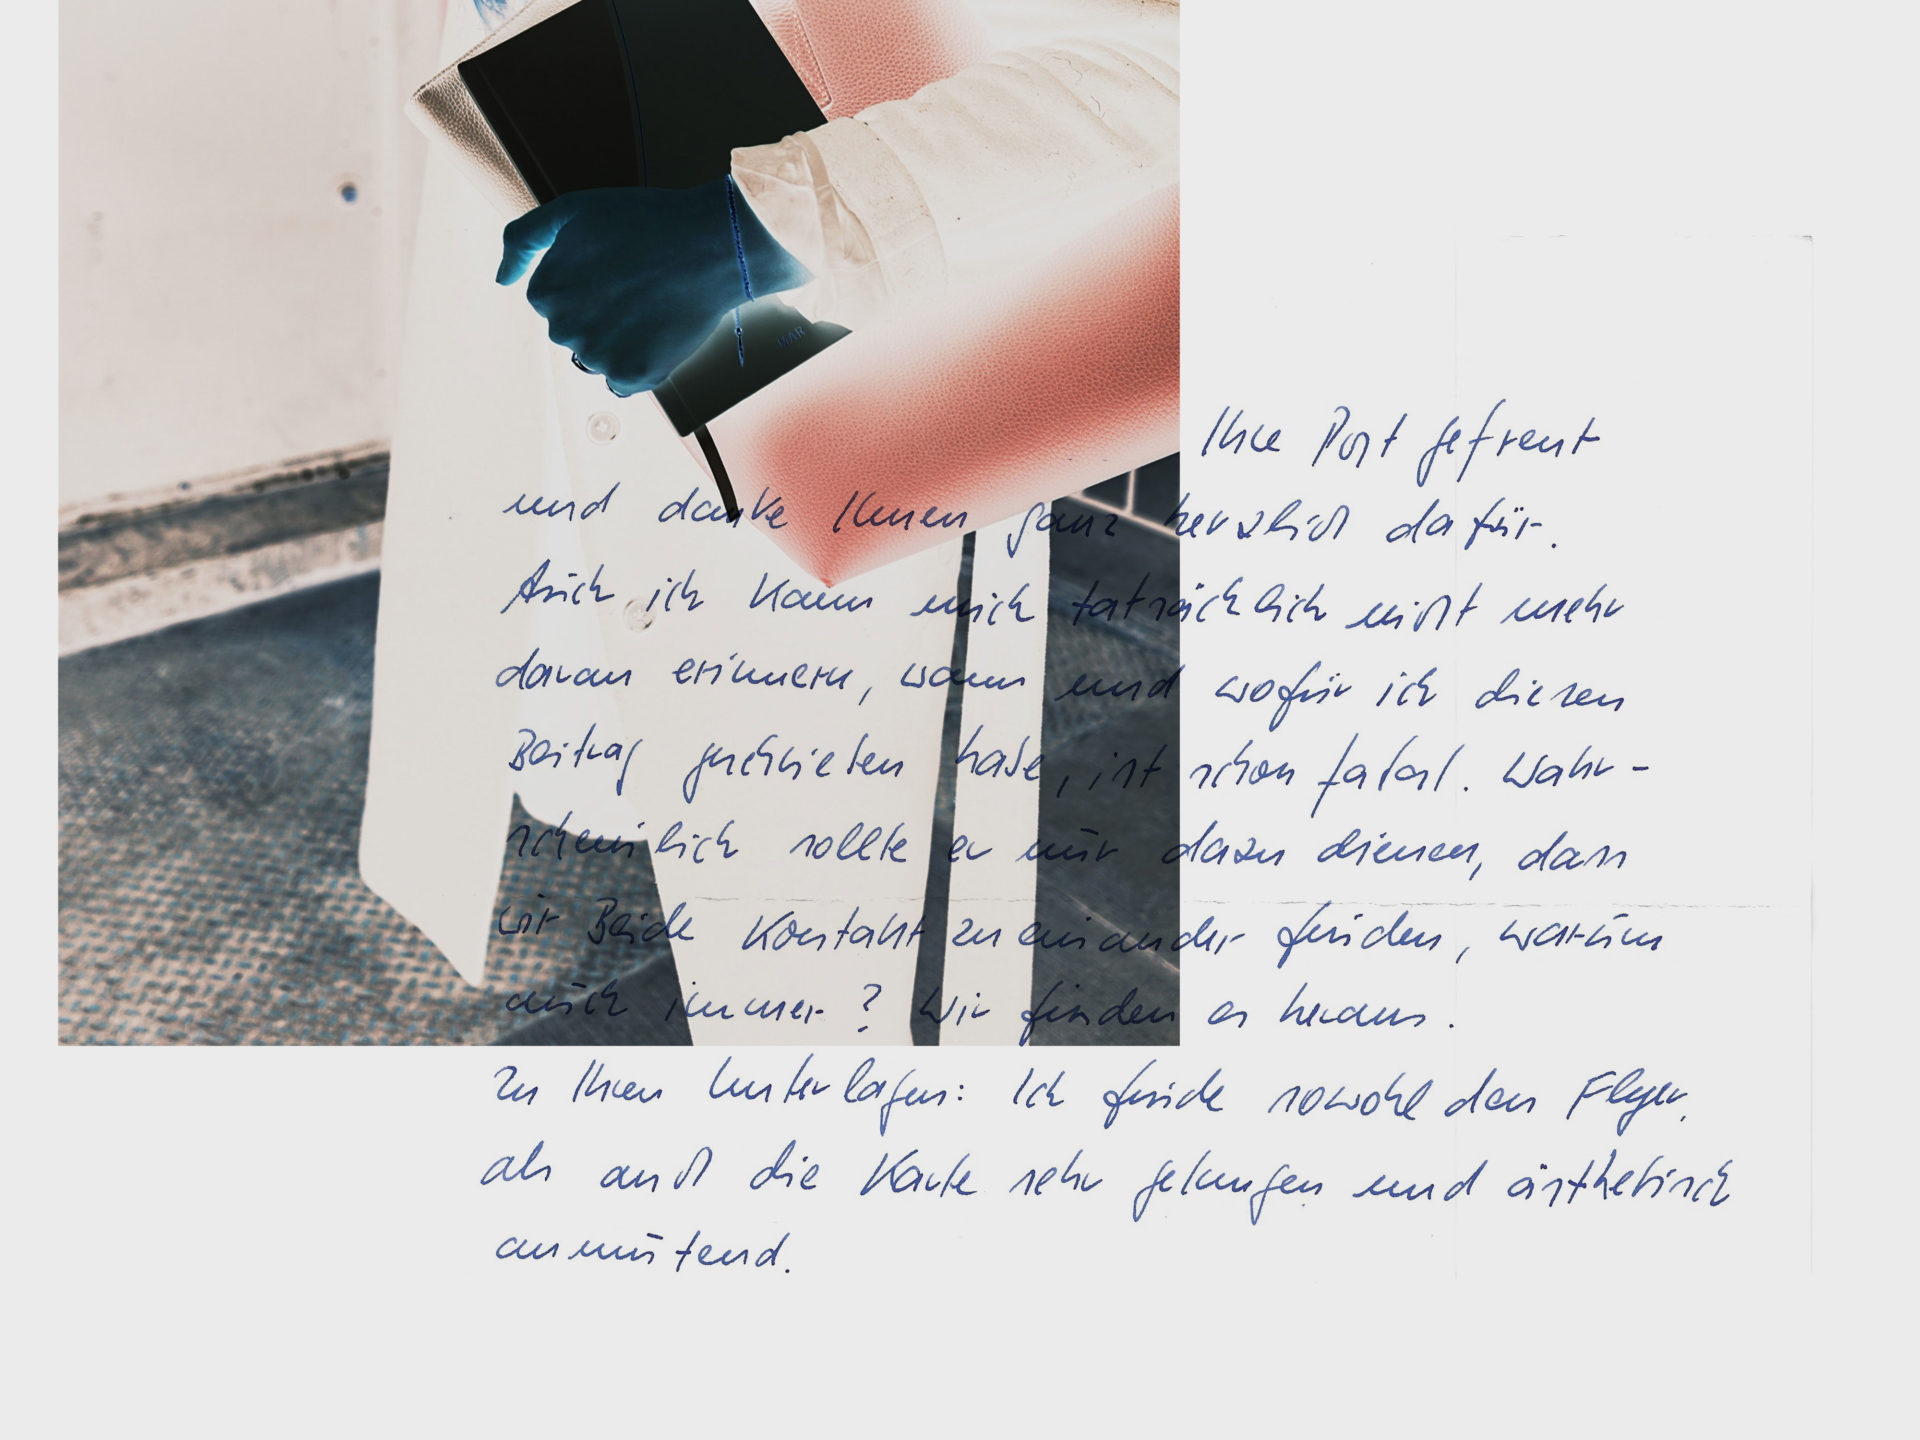 WAR
Ihre Post gefreut
und danke Ihnen ganz herzlich dafür.
Auch ich kann mich tatsächlich nicht mehr
daran erinnern, wann und wofür ich diesen
Beitrag geschrieben habe, ist schon fatal. Wahr-
scheinlich sollte er nur dazu dienen, dass
wir Beide Kontakt zu einander finden, warum
auch immer? Wir finden es heraus.
Zu Ihren Unterlagen: Ich finde sowohl den Flyer,
als auch die Karte sehr gelungen und ästhetisch
anmutend.